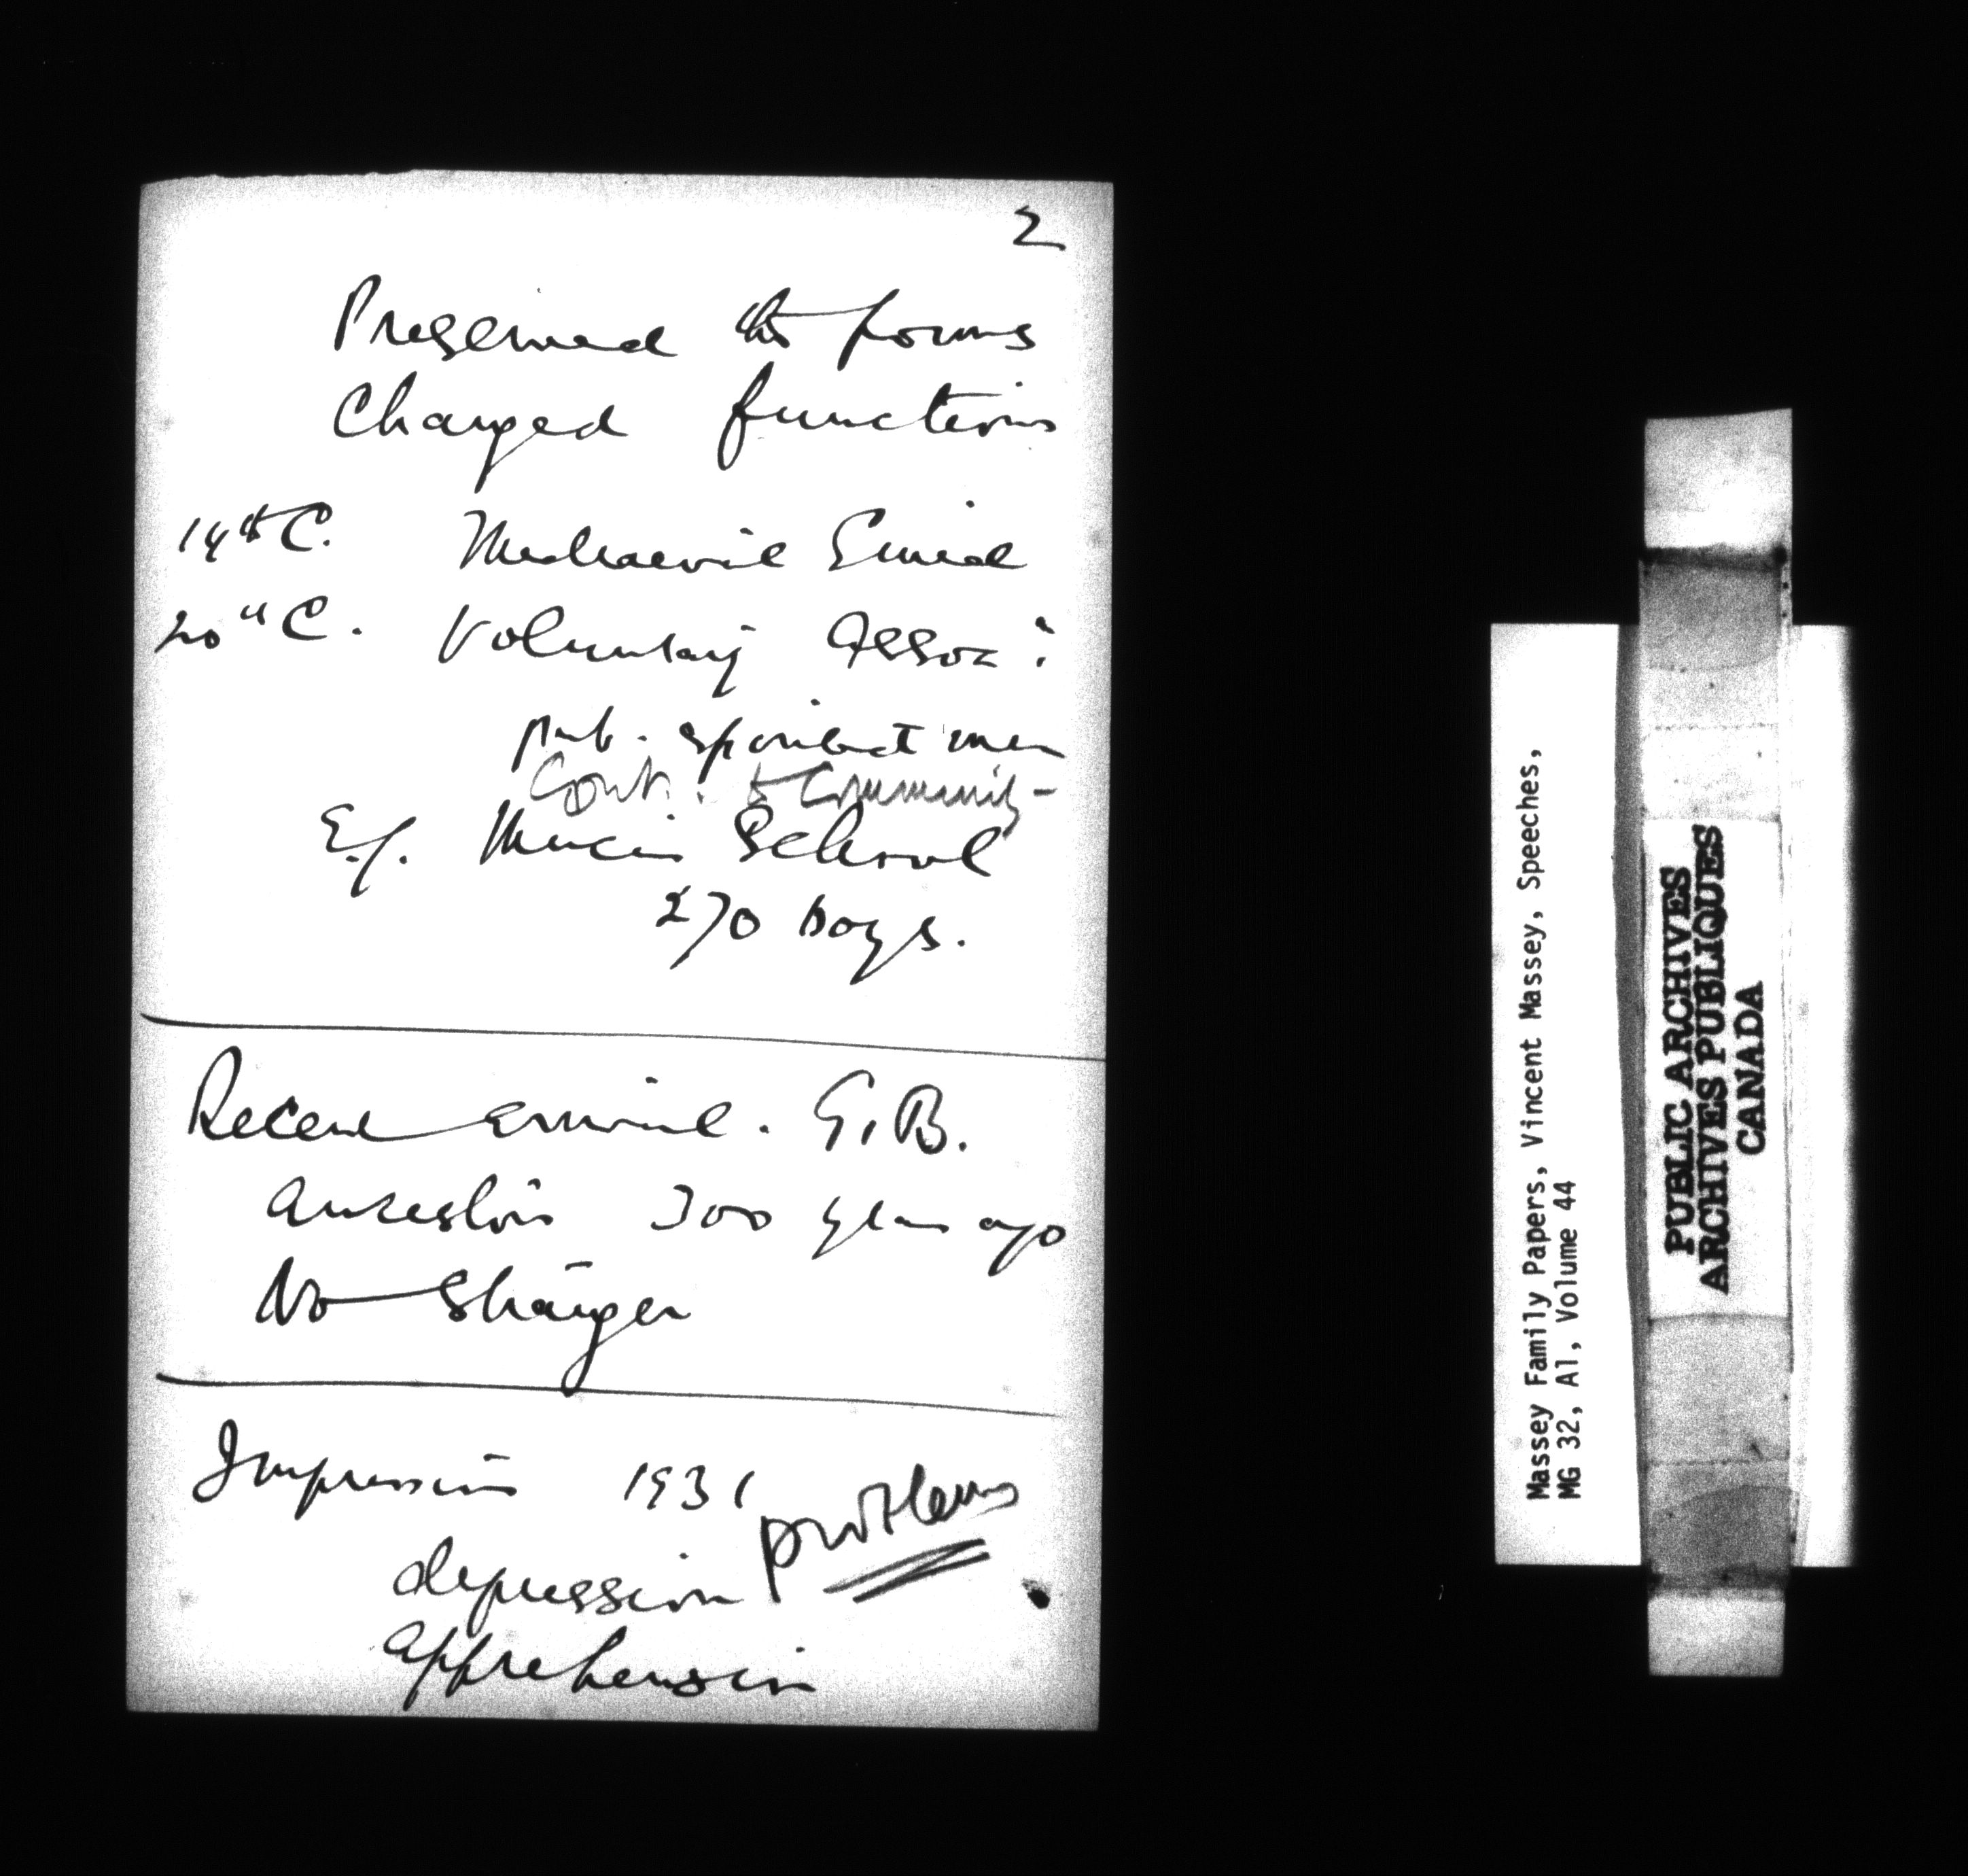 2
Preserved the forms
Changed functions
14th C. Mediaeval Guild
20th C. Voluntary Assoc:
pub. spirited men
Cont. to Community
E.g. Music School
270 boys.
Recent arrival. G.B.
Ancestors 300 years ago
No stranger
Impression 1931
problems
depression
apprehension
Massey Family Papers, Vincent Massey, Speeches,
MG 32, A1, Volume 44
PUBLIC ARCHIVES
ARCHIVES PUBLIQUES
CANADA